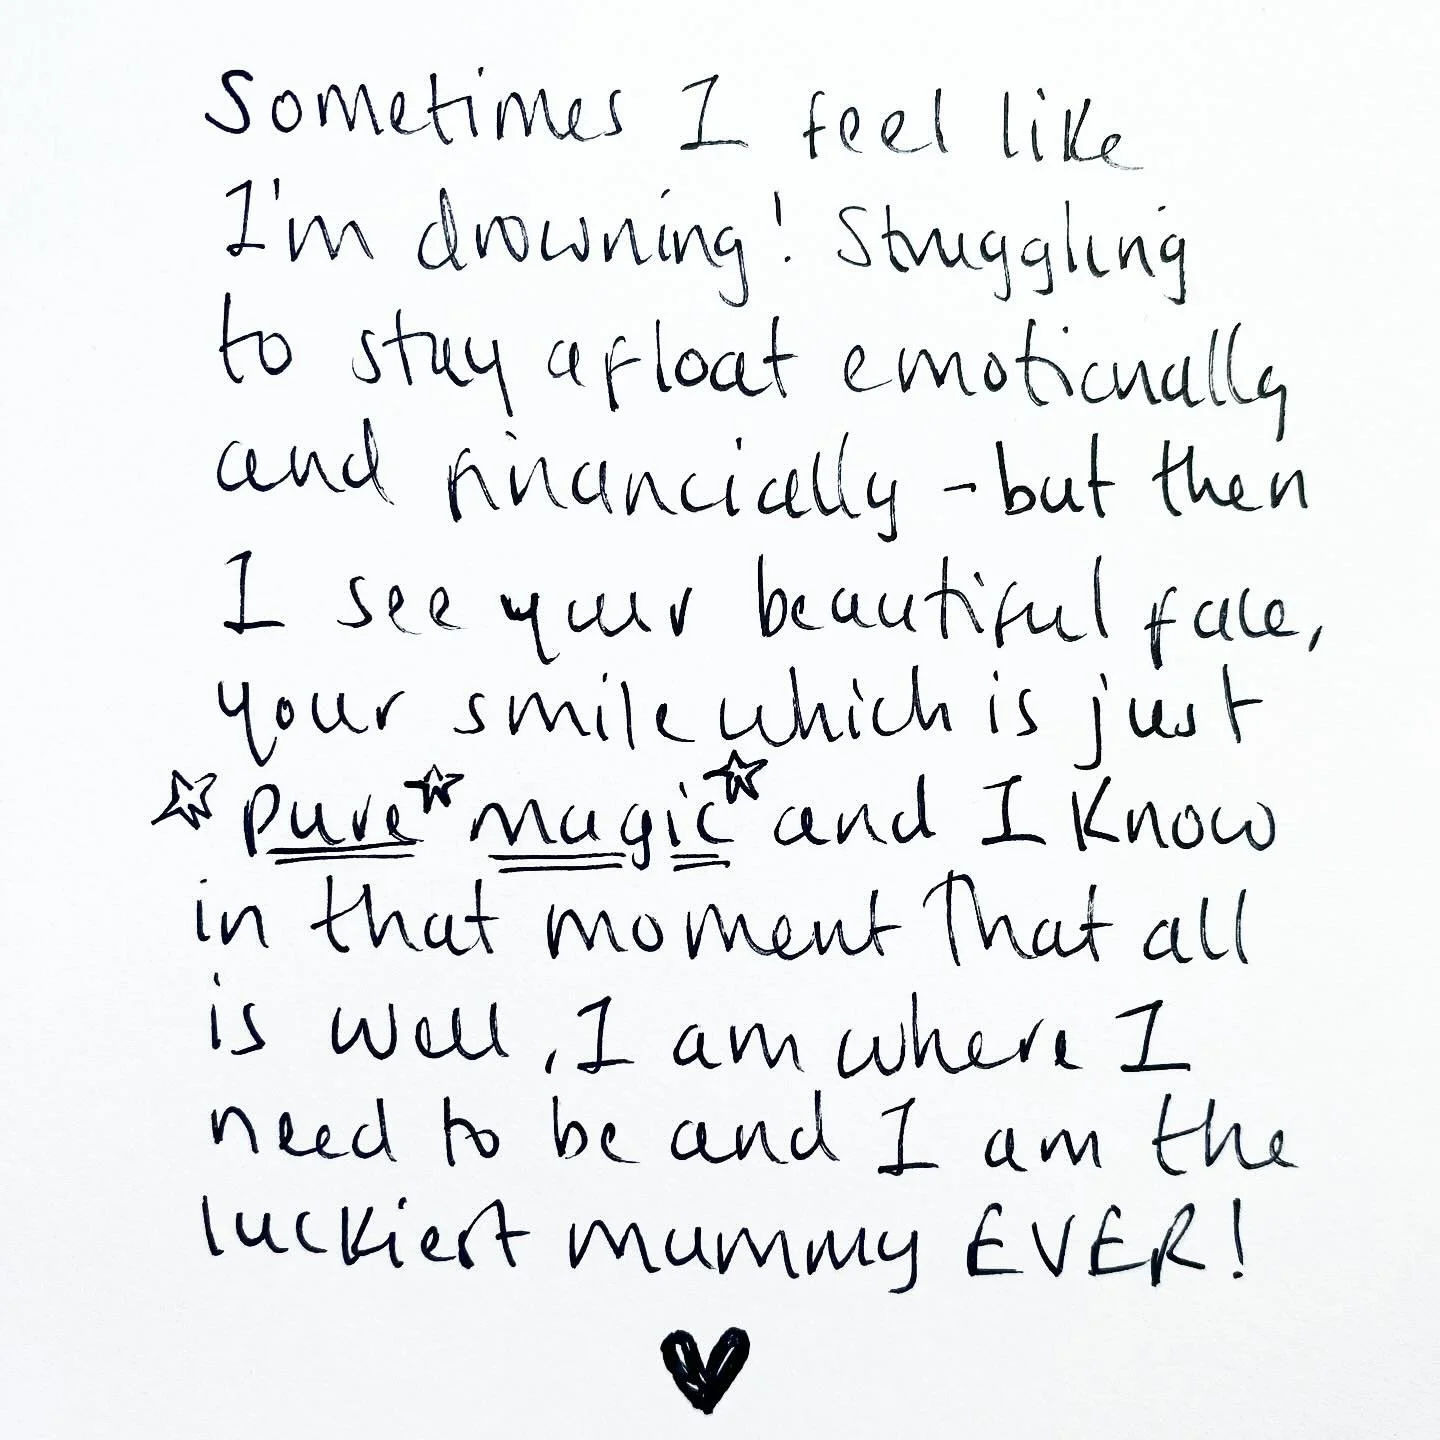 Sometimes I feel like
I'm drowning! Struggling
to stay afloat emotionally
and financially - but then
I see your beautiful face,
your smile which is just
☆ pure ☆ magic ☆ and I know
in that moment That all
is well, I am where I
need to be and I am the
luckiest mummy EVER!
♥